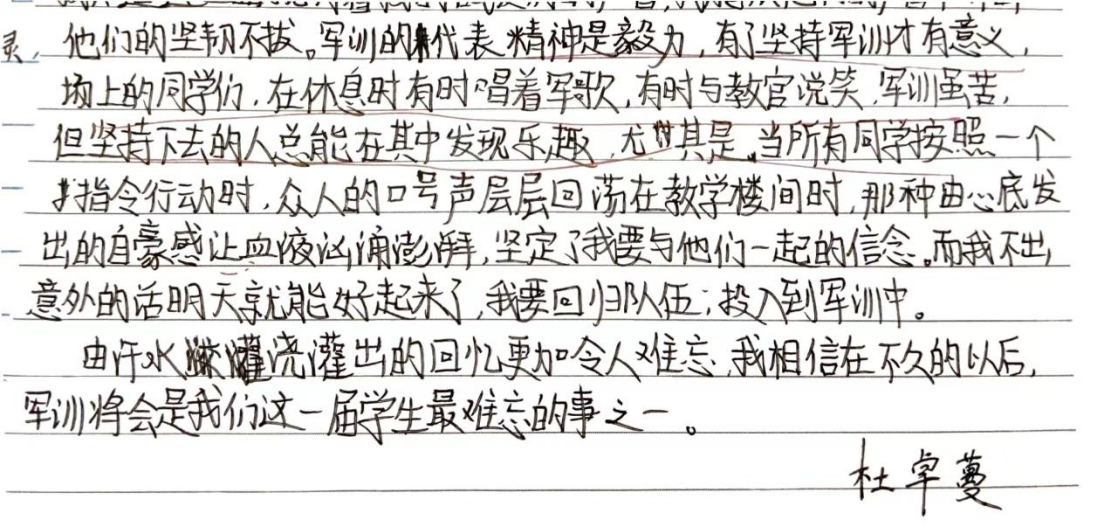 灵，他们的坚韧不拔。军训的代表精神是毅力，有了坚持军训才有意义，
场上的同学们，在休息时有时唱着军歌，有时与教官说笑，军训虽苦，
但坚持下去的人总能在其中发现乐趣，尤其是，当所有同学按照一个
指令行动时，众人的口号声层层回荡在教学楼间时，那种由心底发
出的自豪感让血液汹涌澎湃，坚定了我要与他们一起的信念。而我不出
意外的话明天就能好起来了，我要回归队伍，投入到军训中。
由汗水浇灌出的回忆更加令人难忘，我相信在不久的以后，
军训将会是我们这一届学生最难忘的事之一。
杜卓蔓